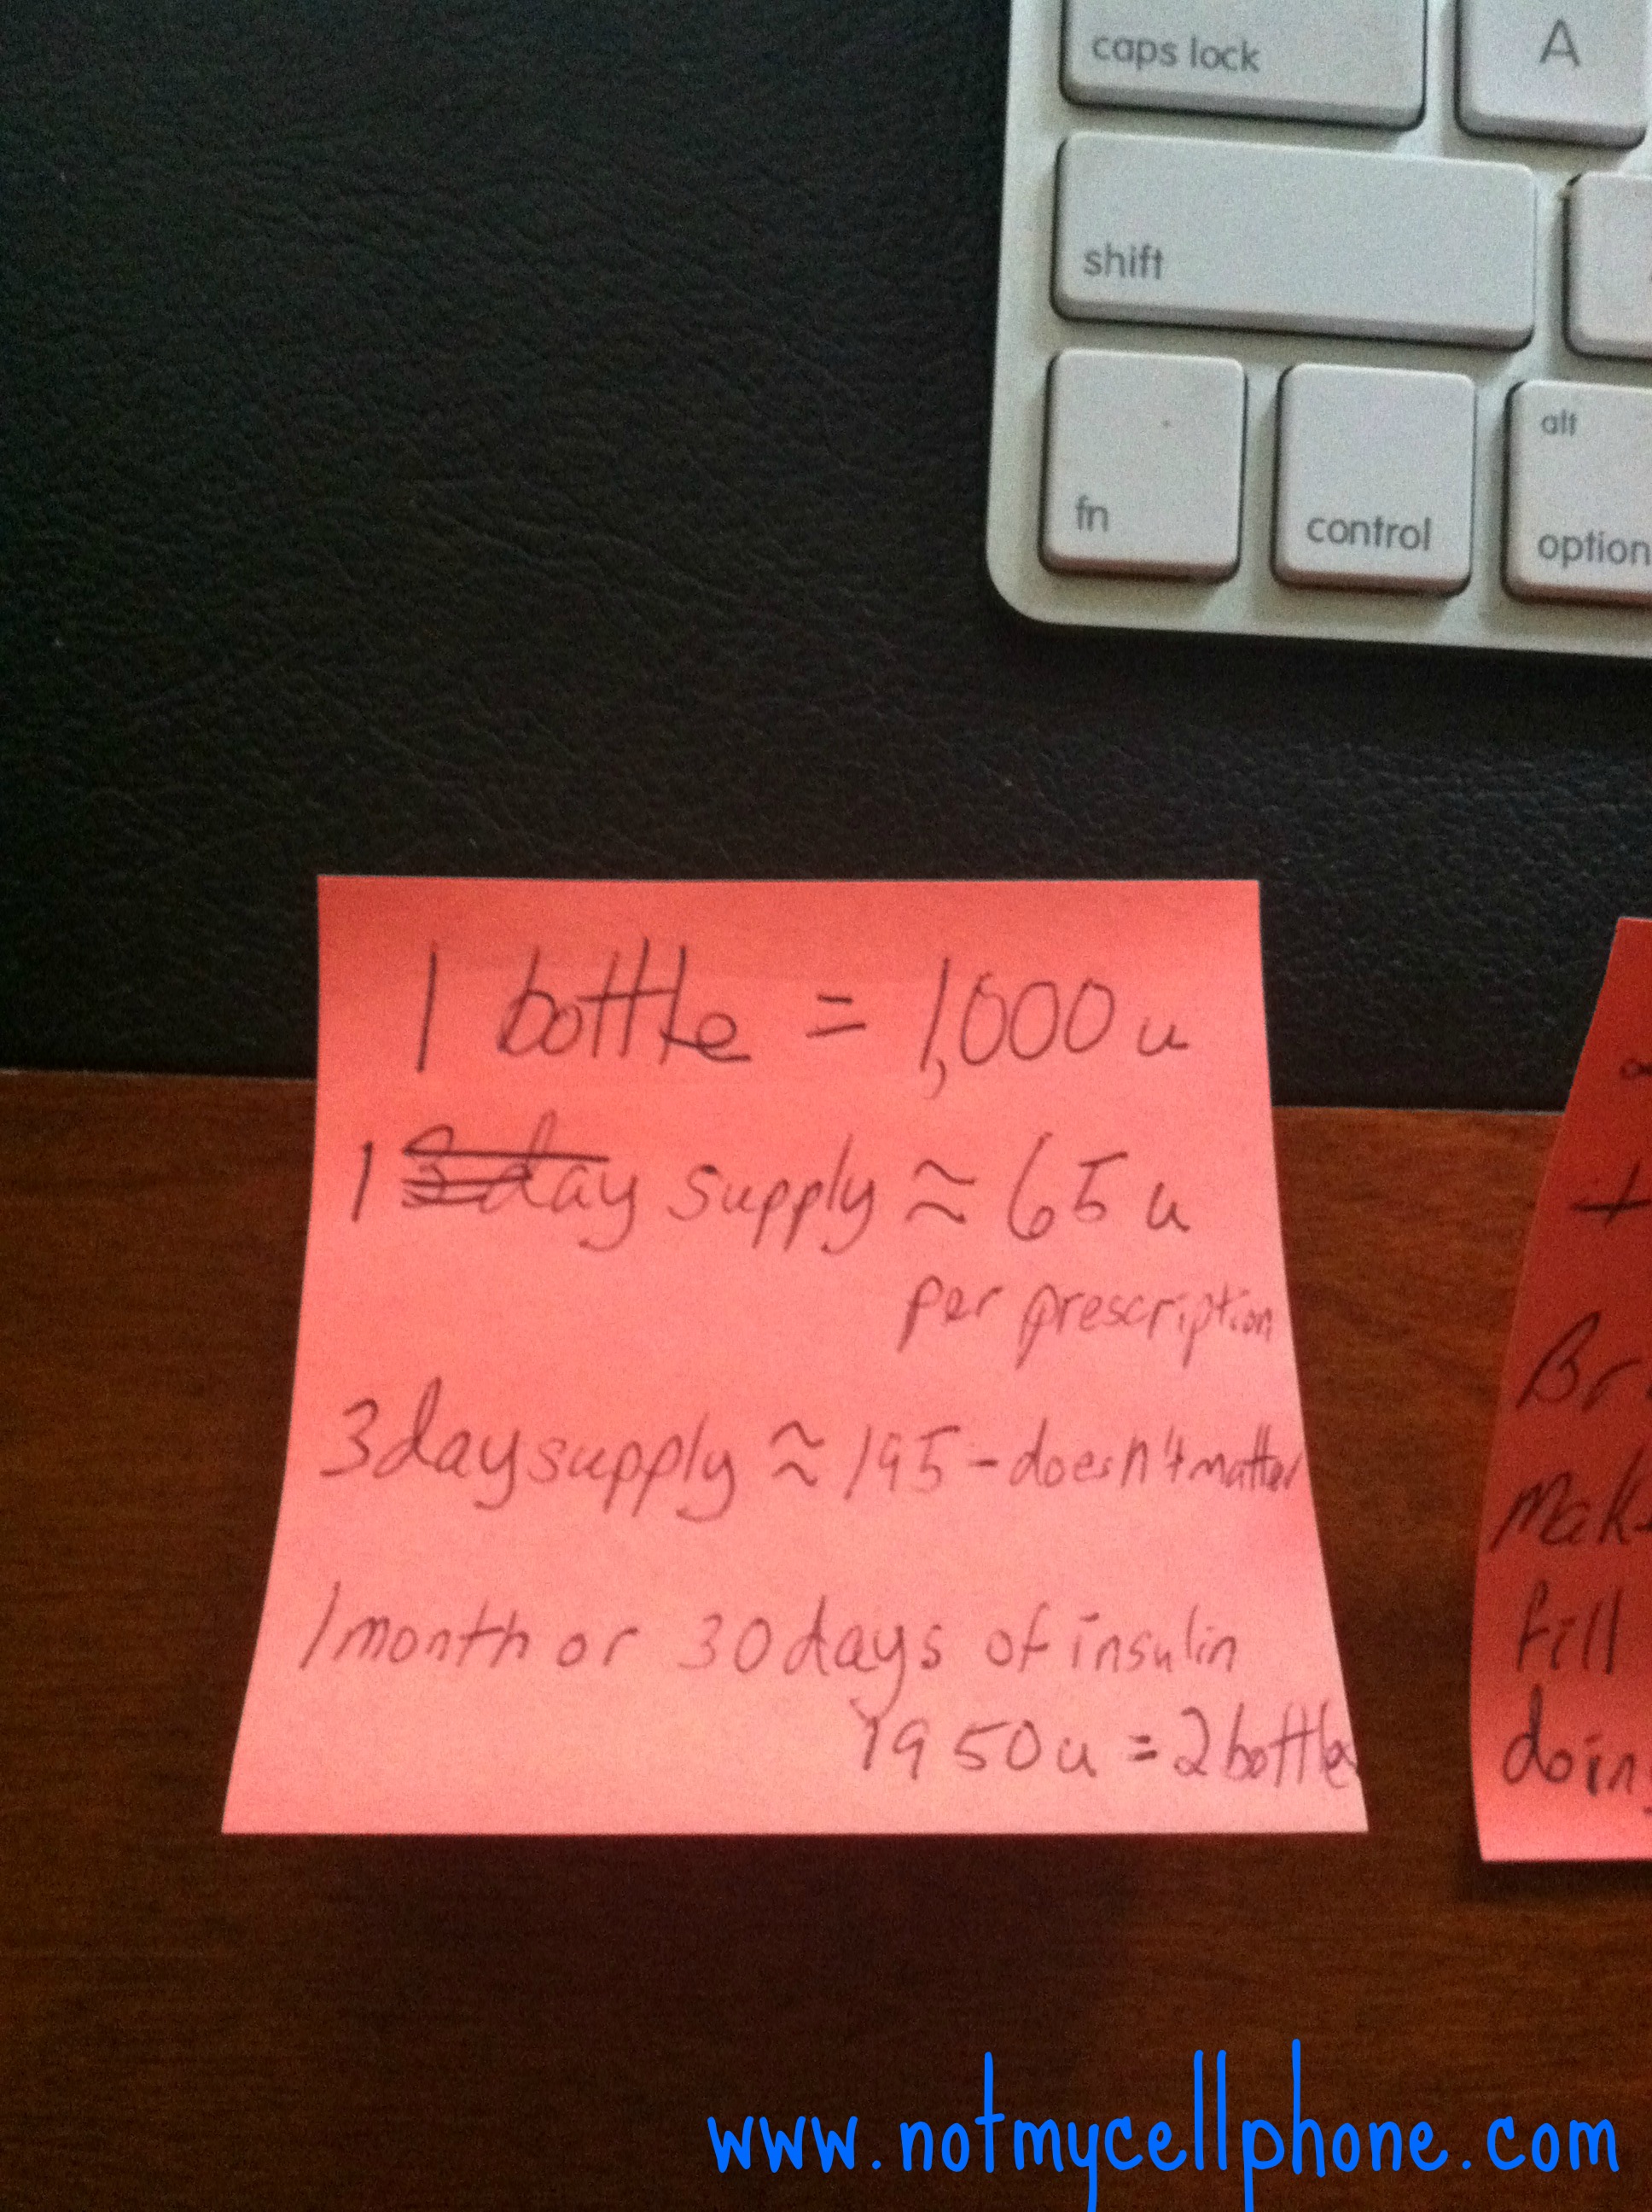 caps lock
A
shift
fn
control
alt
option
1 bottle = 1,000 u
1 day supply ≈ 65 u
per prescription
3 day supply ≈ 195 - doesn't matter
1 month or 30 days of insulin
1950 u = 2 bottles
Br
Mak
fill
doin
www.notmycellphone.com